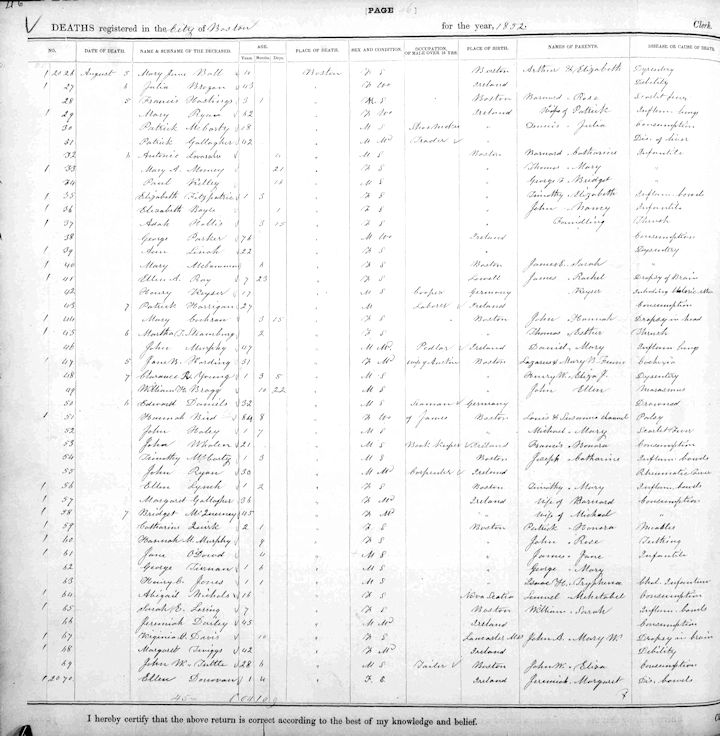 PAGE
DEATHS registered in the City of Boston for the year, 1852. Clerk.
NO. DATE OF DEATH. NAME & SURNAME OF THE DECEASED. AGE. PLACE OF DEATH. SEX AND CONDITION. OCCUPATION, OF MALE OVER 15 YRS. PLACE OF BIRTH. NAMES OF PARENTS. DISEASE OR CAUSE OF DEATH
Years. Months. Days.
1 2026 August 5 Mary Jane Ball 4 Boston F S Boston Arthur & Elizabeth Dysentery
1 27 6 Julia Brogan 43 " F Wo Ireland Debility
28 5 Francis Hastings 3 1 " M S Boston Barnard " Rose Scarlet fever
1 29 Mary Ryan 62 " F Wo Ireland Wife of Patrick Inflam lung
30 Patrick McCarty 18 " M S Shoe Maker " Dennis " Julia Consumption
31 Patrick Gallagher 42 " M Md Trader " Dis. of liver
32 6 " M S Boston Barnard Catharine Infantile
1 33 Mary A. 21 " F S " Thomas " Mary "
34 Paul Kelley " M S " George & Bridget "
1 35 Elizabeth Fitzpatrick 1 3 " F S " Timothy Elizabeth Inflam bowels
1 36 Elizabeth Boyle 1 " F S " John " Nancy Infantile
1 37 Adah Hollis 3 15 " F S " Foundling Thrush
38 George Parker 76 " M Wo Ireland Consumption
1 39 Ann 22 " F S " Dysentery
1 40 Mary 6 " F S Boston James & Sarah "
1 41 Ellen A. Ray 7 23 " F S Lowell James " Rachel Dropsy of Brain
42 Henry Keyser 17 " M S Cooper Germany " Keyser
43 7 Patrick Harrigan 27 " M Laborer Ireland Consumption
1 44 Mary Cochran 3 15 " F S Boston John " Hannah Dropsy in head
1 45 6 Martha T. 2 " F S " Thomas " Esther Thrush
46 John Murphy 47 " M Md Pedlar Ireland Daniel " Mary Inflam lung
1 47 5 Jane W. Harding 31 " F Md wife of Boston Lazarus & Mary B.
1 48 7 Clarance R. Young 1 3 5 " M S " Henry W. " Eliza J. Dysentery
49 William H. Bragg 10 22 " M S " John " Ellen Marasmus
50 6 Edward Daniels 32 " M S Seaman Germany Drowned
1 51 Hannah Bird 84 8 " F Wo of James Boston Louis & Susanna Palsy
52 John Haley 1 7 " M S " Michael " Mary Scarlet Fever
53 John Whalen 21 " M S Book Keeper Ireland Francis " Honora Consumption
54 Timothy McCarty 1 3 " M S Boston Joseph Catharine Inflam bowels
55 John Ryan 30 " M Md Carpenter Ireland Rheumatic Fever
1 56 Ellen Lynch 1 2 " F S Boston Timothy " Mary Inflam. bowels
1 57 Margaret Gallagher 36 " F Md Ireland wife of Barnard Consumption
1 58 7 Bridget 45 " F Md " wife of Michael "
1 59 Catharine Quirk 2 1 " F S Boston Patrick " Honora Measles
1 60 Hannah M. Murphy 9 " F S " John " Rose Teething
1 61 Jane O'Dowd 4 " M S " James " Jane Infantile
62 George Tiernan 1 6 " M S " George " Mary "
63 Henry C. Jones 1 1 " M S " Isaac H. " Tryphena Chol. Infantum
1 64 Abigail Nichols 16 " F S Nova Scotia Samuel " Mehetabel Consumption
1 65 Sarah E. Loring 7 " F S Boston William " Sarah Inflam. bowels
66 Jeremiah Dailey 45 " M Md Ireland Consumption
1 67 Virginia A. Davis 10 " F S Lancaster Ms John A. " Mary W. Dropsy in brain
1 68 Margaret Twiggs 42 " F Md Ireland Debility
69 John W. Tuttle 28 6 " M S Tailor Boston John W. " Eliza Consumption
1 2070. Ellen Donovan 1 4 " F S Ireland Jeremiah Margaret Dis. bowels
45
I hereby certify that the above return is correct according to the best of my knowledge and belief.